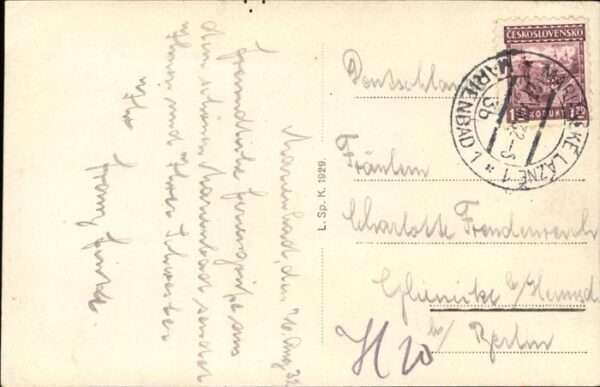 Marienbad, den 26. Aug 32
Freundliche Feriengrüße aus
dem schönen Marienbad sendet
Ihnen und Ihrer Schwester
Ihr
Franz
L. Sp. K. 1929.
ČESKOSLOVENSKO
KORUNY
MARIÁNSKÉ LÁZNĚ 1
MARIENBAD 1
3b
Deutschland
Fräulein
Charlotte Freudenreich
Glienicke b/
bei/ Berlin